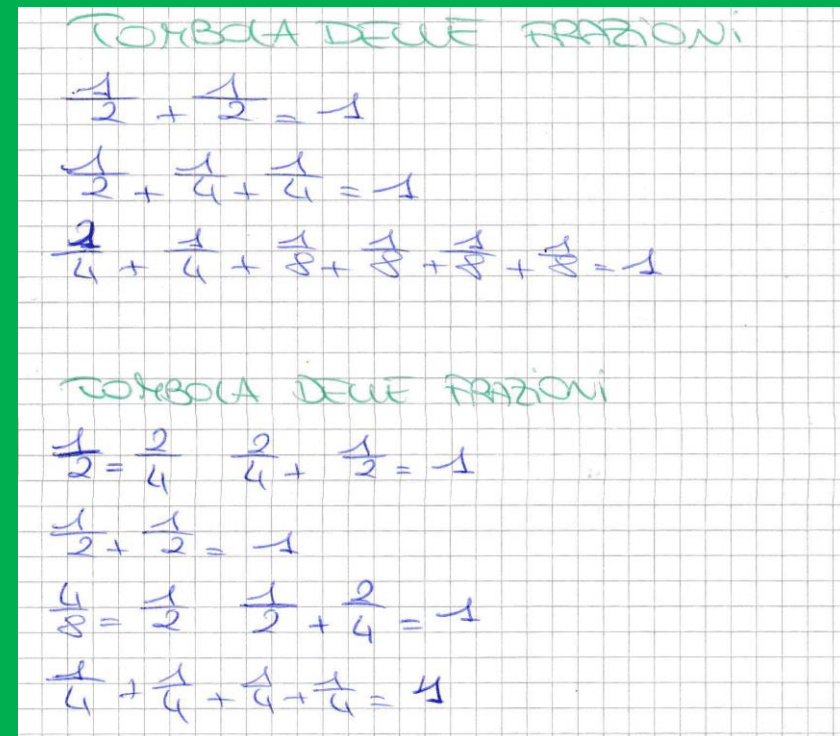 TOMBOLA DELLE FRAZIONI
1/2 + 1/2 = 1
1/2 + 1/4 + 1/4 = 1
1/4 + 1/4 + 1/8 + 1/8 + 1/8 + 1/8 = 1
TOMBOLA DELLE FRAZIONI
1/2 = 2/4 2/4 + 1/2 = 1
1/2 + 1/2 = 1
4/8 = 1/2 1/2 + 2/4 = 1
1/4 + 1/4 + 1/4 + 1/4 = 1